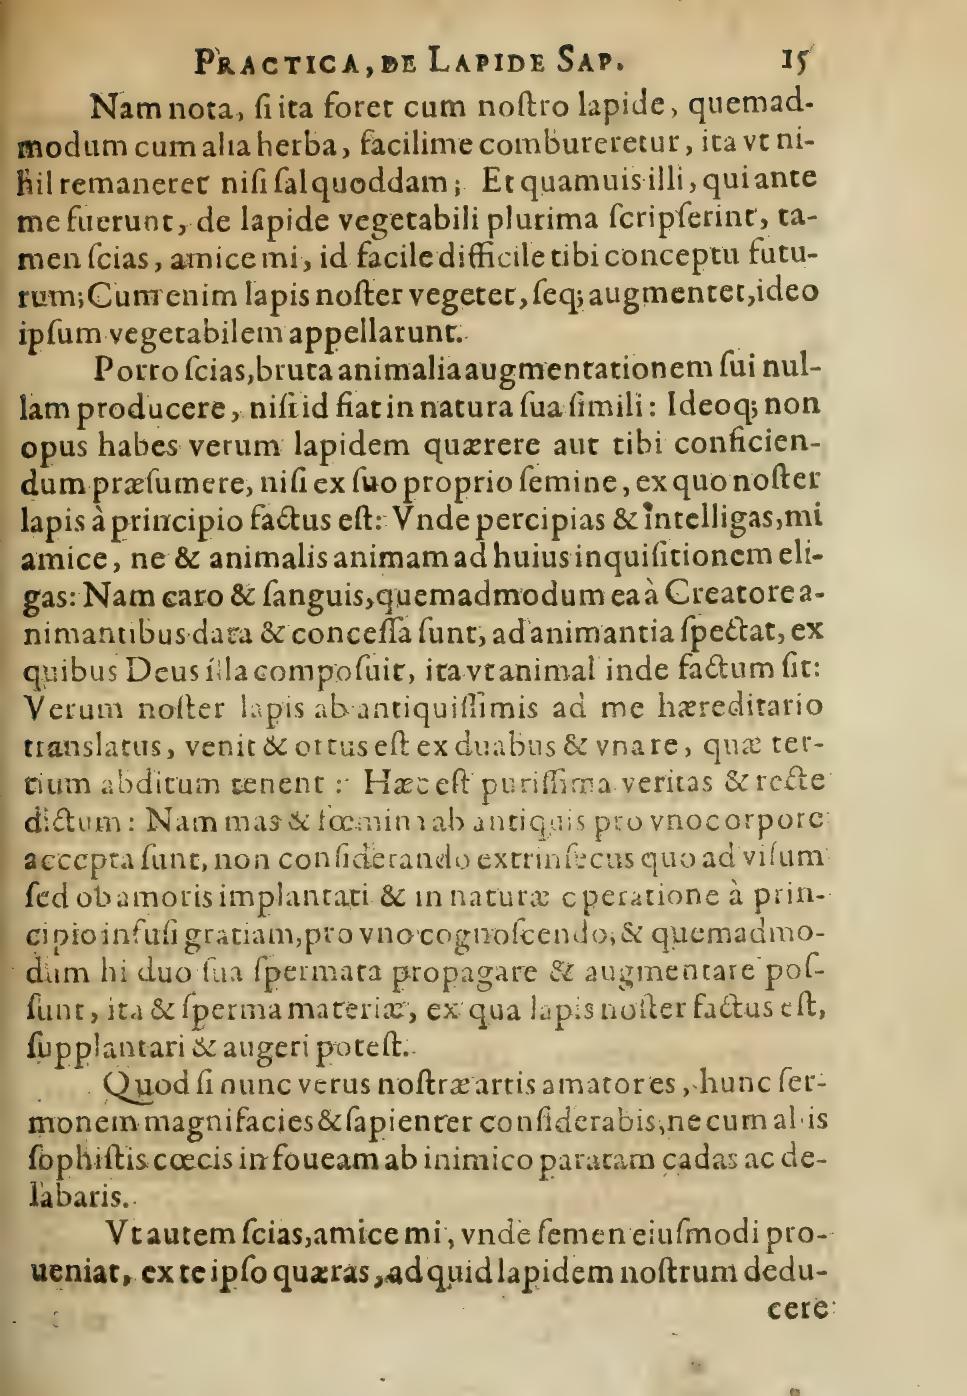 PRACTICA, DE LAPIDE SAP. 15
Nam nota, ſi ita foret cum noſtro lapide, quemad-
modum cum alia herba, facilime combureretur, ita vt ni-
hil remaneret niſi ſal quoddam; Et quamuis illi, qui ante
me fuerunt, de lapide vegetabili plurima ſcripſerint, ta-
men ſcias, amice mi, id facile difficile tibi conceptu futu-
rum; Cum enim lapis noſter vegetet, ſeq; augmentet, ideo
ipſum vegetabilem appellarunt.
Porro ſcias, bruta animalia augmentationem ſui nul-
lam producere, niſi id fiat in natura ſua ſimili: Ideoq; non
opus habes verum lapidem quærere aut tibi conficien-
dum præſumere, niſi ex ſuo proprio ſemine, ex quo noſter
lapis à principio factus eſt: Vnde percipias & Intelligas, mi
amice, ne & animalis animam ad huius inquiſitionem eli-
gas: Nam caro & ſanguis, quemadmodum ea à Creatore a-
nimantibus data & conceſſa ſunt, ad animantia ſpectat, ex
quibus Deus illa compoſuit, ita vt animal inde factum ſit:
Verum noſter lapis ab antiquiſſimis ad me hæreditario
translatus, venit & ortus eſt ex duabus & vna re, quæ ter-
tium abditum tenent: Hæc eſt puriſſima veritas & recte
dictum: Nam mas & fœmina ab antiquis pro vno corpore
accepta ſunt, non conſiderando extrinſecus quo ad viſum
ſed ob amoris implantati & in naturæ operatione à prin-
cipio infuſi gratiam, pro vno cognoſcendo, & quemadmo-
dum hi duo ſua ſpermata propagare & augmentare poſ-
ſunt, ita & ſperma materiæ, ex qua lapis noſter factus eſt,
ſupplantari & augeri poteſt.
Quod ſi nunc verus noſtræ artis amator es, hunc ſer-
monem magnifacies & ſapienter conſiderabis, ne cum aliis
ſophiſtis cœcis in foueam ab inimico paratam cadas ac de-
labaris.
Vt autem ſcias, amice mi, vnde ſemen eiuſmodi pro-
ueniat, ex te ipſo quæras, ad quid lapidem noſtrum dedu-
cere